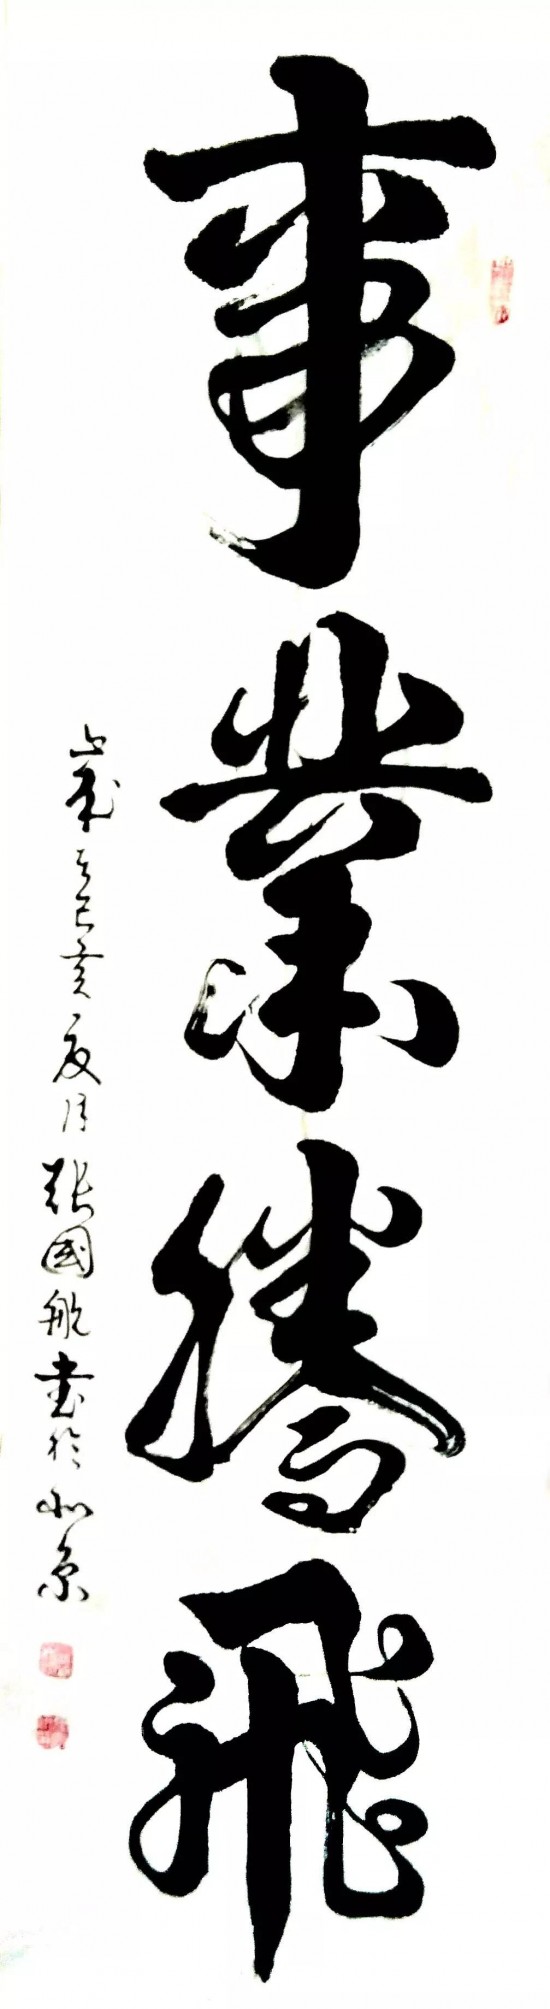 事業騰飛
歲在己亥夏月張國航書於北京